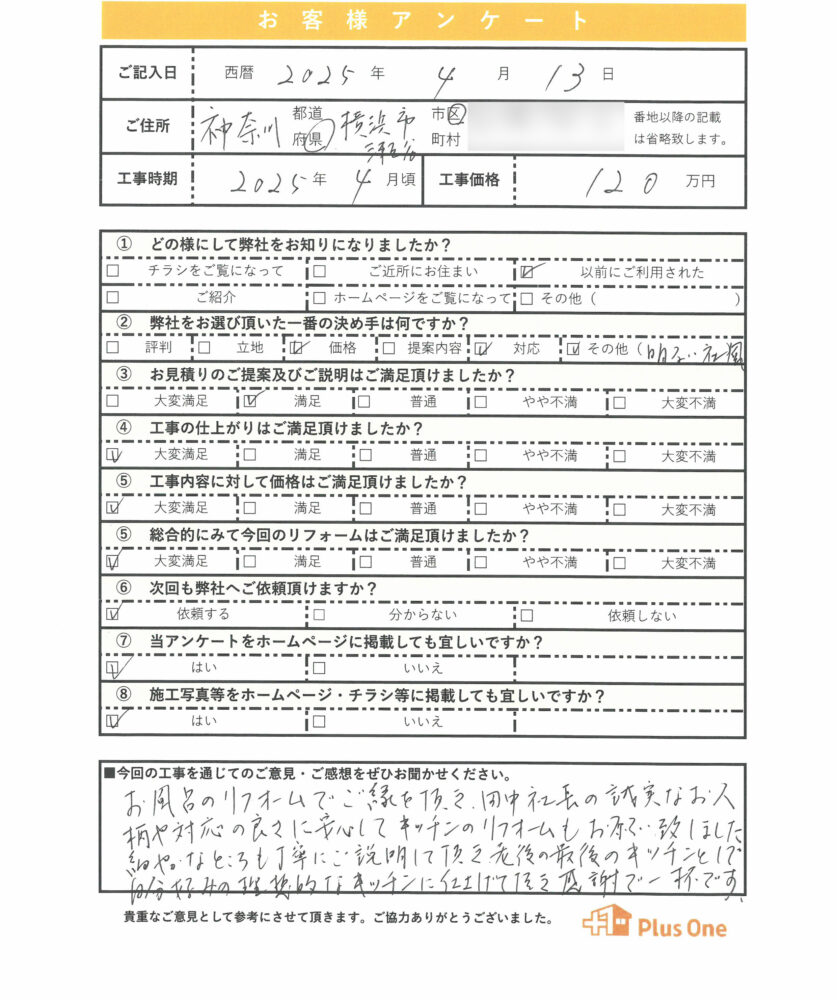 お客様アンケート
ご記入日 西暦 2025 年 4 月 13 日
ご住所 神奈川 都道府県 横浜市 瀬谷 市区町村 番地以降の記載は省略致します。
工事時期 2025 年 4 月頃 工事価格 120 万円
① どの様にして弊社をお知りになりましたか？
□ チラシをご覧になって □ ご近所にお住まい ☑ 以前にご利用された
□ ご紹介 □ ホームページをご覧になって □ その他（ ）
② 弊社をお選び頂いた一番の決め手は何ですか？
□ 評判 □ 立地 ☑ 価格 □ 提案内容 ☑ 対応 ☑ その他（明るい社風
③ お見積りのご提案及びご説明はご満足頂けましたか？
□ 大変満足 ☑ 満足 □ 普通 □ やや不満 □ 大変不満
④ 工事の仕上がりはご満足頂けましたか？
☑ 大変満足 □ 満足 □ 普通 □ やや不満 □ 大変不満
⑤ 工事内容に対して価格はご満足頂けましたか？
☑ 大変満足 □ 満足 □ 普通 □ やや不満 □ 大変不満
⑤ 総合的にみて今回のリフォームはご満足頂けましたか？
☑ 大変満足 □ 満足 □ 普通 □ やや不満 □ 大変不満
⑥ 次回も弊社へご依頼頂けますか？
☑ 依頼する □ 分からない □ 依頼しない
⑦ 当アンケートをホームページに掲載しても宜しいですか？
☑ はい □ いいえ
⑧ 施工写真等をホームページ・チラシ等に掲載しても宜しいですか？
☑ はい □ いいえ
■今回の工事を通じてのご意見・ご感想をぜひお聞かせください。
お風呂のリフォームでご縁を頂き、田中社長の誠実なお人
柄や対応の良さに安心してキッチンのリフォームもお願い致しました
細やかなところも丁寧にご説明して頂き老後の最後のキッチンとして
自分好みの理想的なキッチンに仕上げて頂き感謝で一杯です
貴重なご意見として参考にさせて頂きます。ご協力ありがとうございました。
Plus One